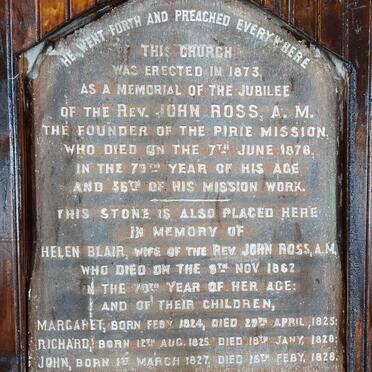 HE WENT FORTH AND PREACHED EVERYWHERE
THIS CHURCH
WAS ERECTED IN 1873,
AS A MEMORIAL OF THE JUBILEE
OF THE REV. JOHN ROSS, A. M.
THE FOUNDER OF THE PIRIE MISSION,
WHO DIED ON THE 7TH JUNE 1878,
IN THE 79TH YEAR OF HIS AGE
AND 56TH OF HIS MISSION WORK.
THIS STONE IS ALSO PLACED HERE
IN MEMORY OF
HELEN BLAIR, WIFE OF THE REV JOHN ROSS, A.M.
WHO DIED ON THE 9TH NOV 1862
IN THE YEAR OF HER AGE:
AND OF THEIR CHILDREN,
MARGARET, BORN FEBY 1824, DIED 29TH APRIL, 1825:
RICHARD, BORN 12TH AUG. 1825 DIED 18TH JANY, 1828:
JOHN, BORN 1ST MARCH 1827, DIED 16TH FEBY, 1828.